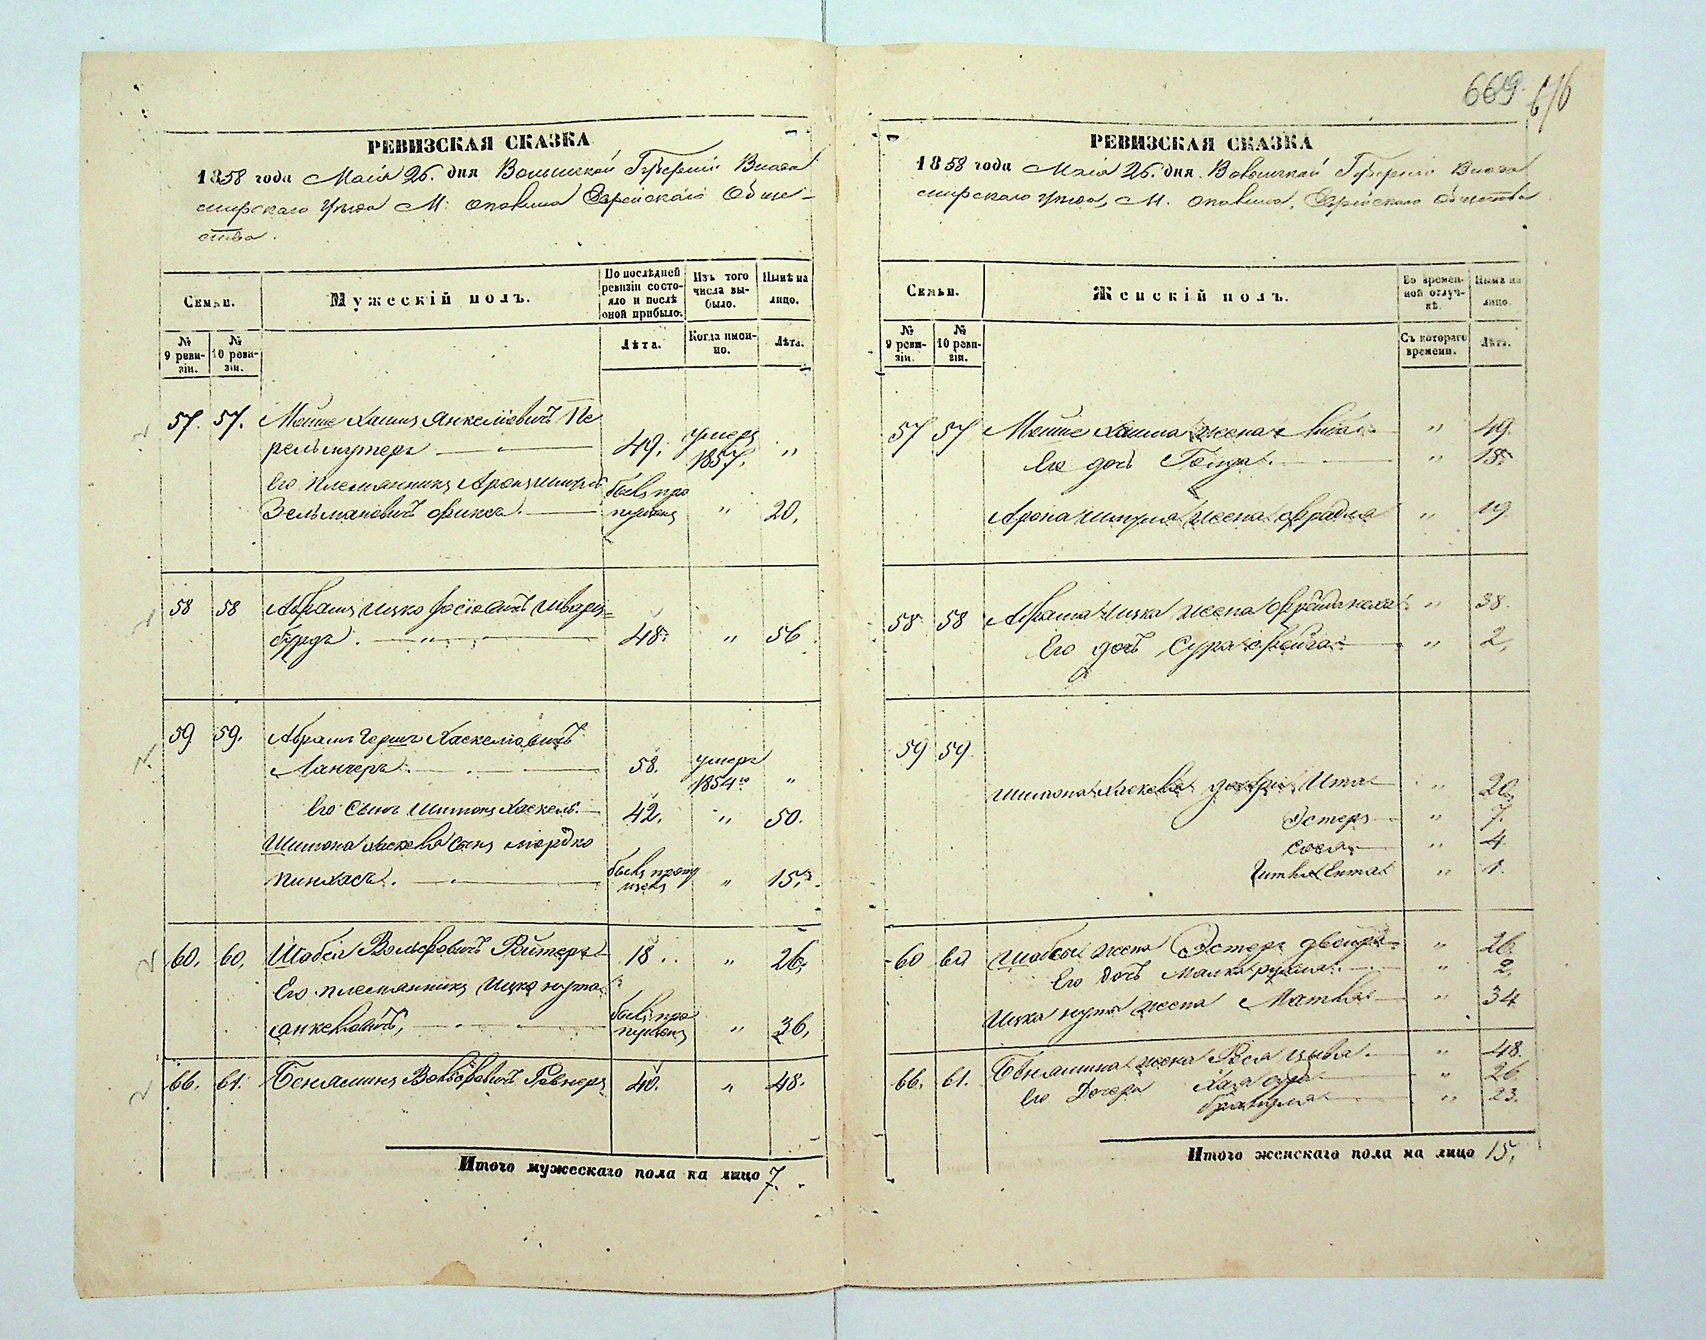 669. 616
РЕВИЗСКАЯ СКАЗКА
1858 года Маія 26. дня Волынской Губерніи Влади
мірскаго Уѣзда М. Опалина Еврейскаго Обще-
ства.
Семьи.
Мужескій полъ.
По послѣдней ревизіи состояло и послѣ оной прибыло.
Изъ того числа выбыло.
Нынѣ на лицо.
№ 9 ревизіи.
№ 10 ревизіи.
Лѣта.
Когда именно.
Лѣта.
57. 57. Мошко Хаимъ Янкеліовичъ Пе
рельмутеръ 49. умеръ 1857. "
Его племянникъ Аронъ Шмуль былъ про
Зельмановичъ пущенъ " 20.
58 58 Абрамъ Ицко Іосіовичъ Шварц=
бурдъ. 48. " 56
59 59. Абрамъ Гершъ Хаскеліовичъ
Лангеръ. 58. умеръ 1854го "
Его сынъ Шимонъ Хаскель. 42. " 50.
Шимона Хаскеля сынъ Мордко
Пинхасъ. былъ пропущенъ " 15.
60. 60. Шабсій Вольфовичъ Ройтеръ 18. " 26.
Его племянникъ Ицко Нута
Янкеловичъ, былъ пропущенъ " 36.
66. 61. Беняминъ Вольфовичъ Ровнеръ 40. " 48.
Итого мужескаго пола на лицо 7.
РЕВИЗСКАЯ СКАЗКА
1858 года Маія 26. дня Волынской Губерніи Влади
мірскаго Уѣзда, М. Опалина, Еврейскаго Общества
Семьи.
Женскій полъ.
Во временной отлучкѣ.
Нынѣ на лицо.
№ 9 ревизіи.
№ 10 ревизіи.
Съ котораго времени.
Лѣта.
57 57 Мошко Хаима жена " 49.
Его дочь Голда. " 18.
Арона Шмуля жена Фрадля " 19
58 58 Абрама Ицка жена " 38.
Его дочь Сура Фейга. " 2.
59 59
Шимона Хаскеля дочери Ита " 20.
Эстеръ " 7.
Сося " 4
Гитля Ента " 1.
60 60 Шабсы жена Эстеръ Двейра " 26.
Его дочь Малка " 2.
Ицка Нуты жена " 34
66. 61. Бенямина жена Цивья. " 48.
Его дочери Хая Сура " 26.
" 23.
Итого женскаго пола на лицо 15.